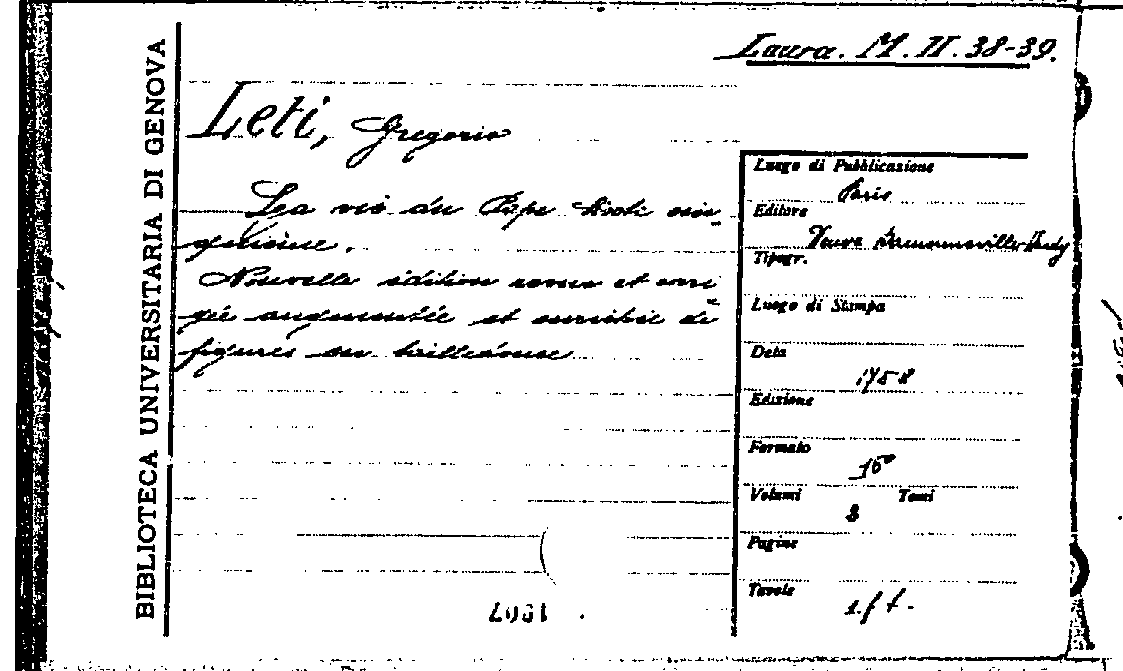 BIBLIOTECA UNIVERSITARIA DI GENOVA
Laura. M. II. 38-39.
Leti, Gregorio
La vie du Pape Sixte cin-
quième.
Nouvelle édition revue et corri-
gée augmentée et enrichie de
figures en tailledouce
Luogo di Pubblicazione
Paris
Editore
Veuve
Tipogr.
Luogo di Stampa
Data
1758
Edizione
Formato
16°
Volumi Tomi
Pagine
Tavole